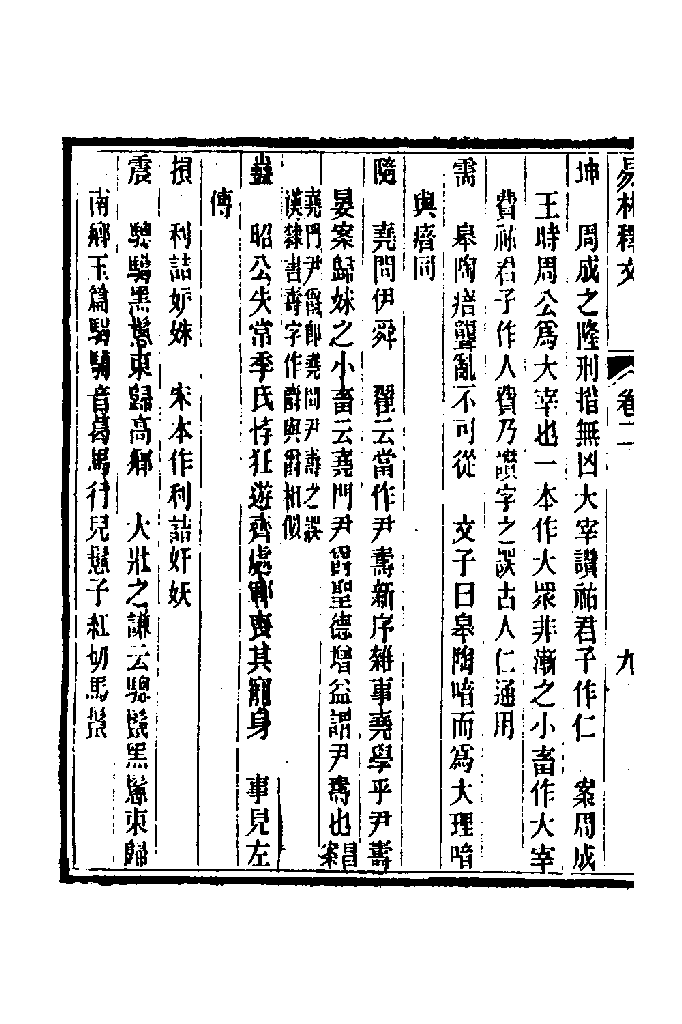 易林釋文 卷二 九
坤 周成之隆刑措無凶大宰讚祐君子作仁 案周成
王時周公爲大宰也一本作大眾非漸之小畜作大宰
費祐君子作人費乃讚字之誤古人仁通用
需 皋陶瘖聾亂不可從 文子曰皋陶喑而爲大理喑
與瘖同
隨 堯問伊舜 翟云當作尹壽新序雜事堯學乎尹壽
晏案歸妹之小畜云堯門尹爵聖德增益謂尹壽也昌案
堯門尹爵卽堯問尹壽之誤
漢隸書壽字作𠷎與爵相似
蠱 昭公失常季氏悖狂遊齊處鄆喪其寵身 事見左
傳
損 利詰妒妹 宋本作利詰奸妖
震 騘騧黑鬃東歸高鄉 大壯之謙云騘鬣黑鬃東歸
南鄉玉篇騧音葛馬行兒鬃子紅切馬鬣